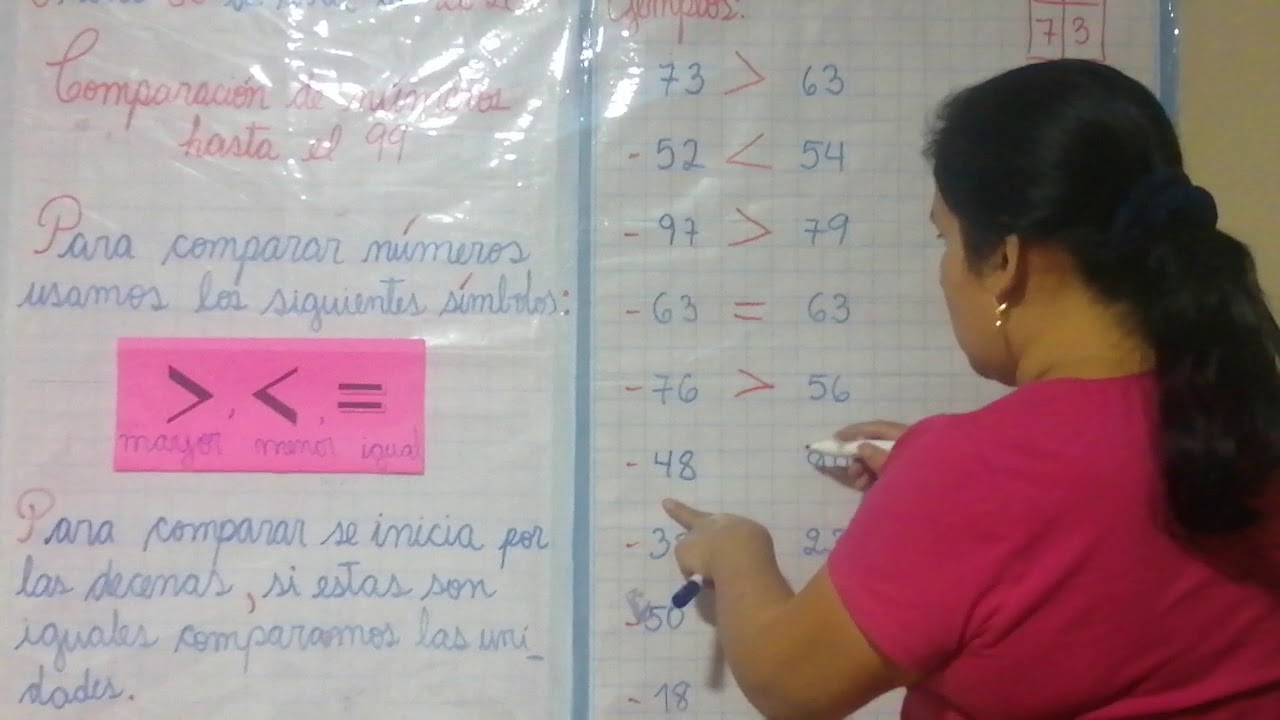 Comparación de números
hasta el 99
Para comparar números
usamos los siguientes símbolos:
> , < , =
mayor menor igual
Para comparar se inicia por
las decenas, si estas son
iguales comparamos las uni_
dades.
Ejemplos:
7 3
73 > 63
- 52 < 54
- 97 > 79
- 63 = 63
- 76 > 56
- 48
-
- 50
- 18